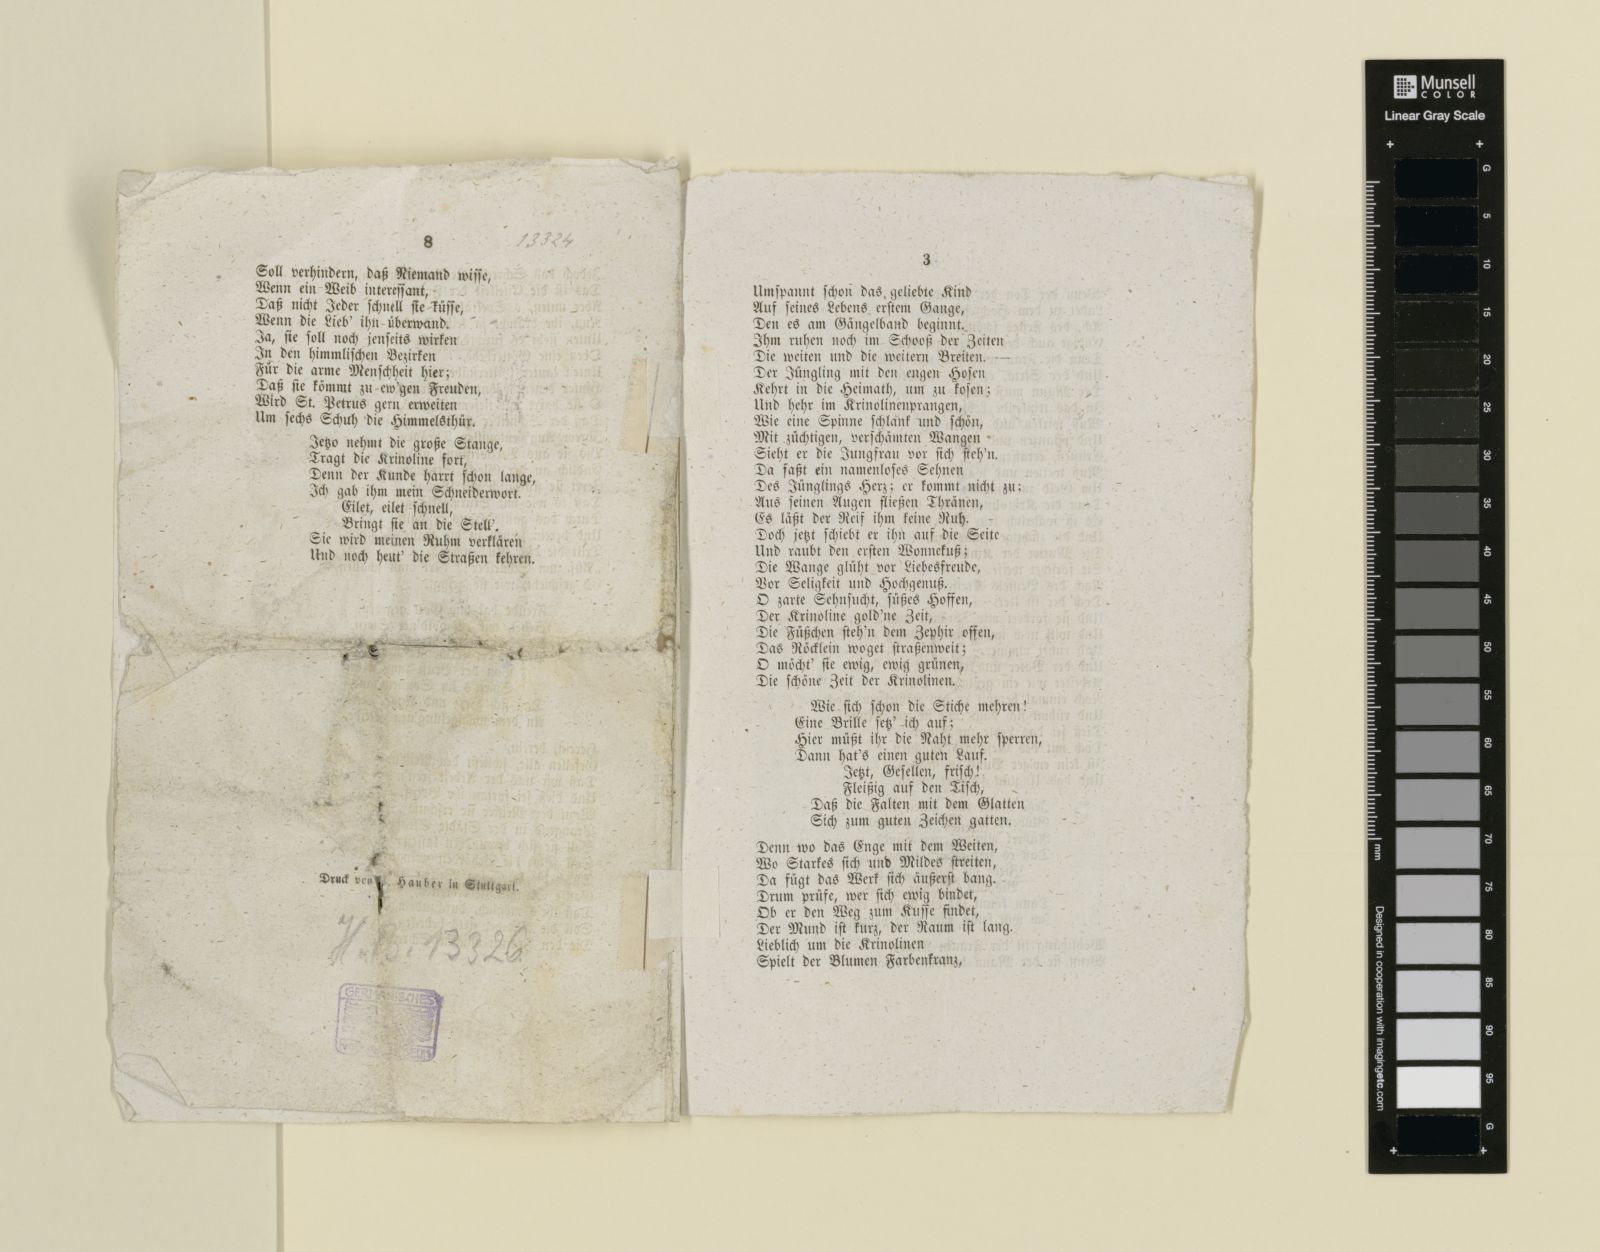 8
13324
Soll verhindern, daß Niemand wisse,
Wenn ein Weib interessant,
Daß nicht Jeder schnell sie küsse,
Wenn die Lieb' ihn überwand.
Ja, sie soll noch jenseits wirken
In den himmlischen Bezirken
Für die arme Menschheit hier;
Daß sie kömmt zu ew'gen Freuden,
Wird St. Petrus gern erweiten
Um sechs Schuh die Himmelsthür.
Jetzo nehmt die große Stange,
Tragt die Krinoline fort,
Denn der Kunde harrt schon lange,
Ich gab ihm mein Schneiderwort.
Eilet, eilet schnell,
Bringt sie an die Stell'.
Sie wird meinen Ruhm verklären
Und noch heut' die Straßen kehren.
Druck von Hauber in Stuttgart.
H. B. 13326
GERMANISCHES
3
Umspannt schon das geliebte Kind
Auf seines Lebens erstem Gange,
Den es am Gängelband beginnt.
Ihm ruhen noch im Schooß der Zeiten
Die weiten und die weitern Breiten. —
Der Jüngling mit den engen Hosen
Kehrt in die Heimath, um zu kosen;
Und hehr im Krinolinenprangen,
Wie eine Spinne schlank und schön,
Mit züchtigen, verschämten Wangen
Sieht er die Jungfrau vor sich steh'n.
Da faßt ein namenloses Sehnen
Des Jünglings Herz; er kommt nicht zu;
Aus seinen Augen fließen Thränen,
Es läßt der Reif ihm keine Ruh.
Doch jetzt schiebt er ihn auf die Seite
Und raubt den ersten Wonnekuß;
Die Wange glüht vor Liebesfreude,
Vor Seligkeit und Hochgenuß.
O zarte Sehnsucht, süßes Hoffen,
Der Krinoline gold'ne Zeit,
Die Füßchen steh'n dem Zephir offen,
Das Röcklein woget straßenweit;
O möcht' sie ewig, ewig grünen,
Die schöne Zeit der Krinolinen.
Wie sich schon die Stiche mehren!
Eine Brille setz' ich auf;
Hier müßt ihr die Naht mehr sperren,
Dann hat's einen guten Lauf.
Jetzt, Gesellen, frisch!
Fleißig auf den Tisch,
Daß die Falten mit dem Glatten
Sich zum guten Zeichen gatten.
Denn wo das Enge mit dem Weiten,
Wo Starkes sich und Mildes streiten,
Da fügt das Werk sich äußerst bang.
Drum prüfe, wer sich ewig bindet,
Ob er den Weg zum Kusse findet,
Der Mund ist kurz, der Raum ist lang.
Lieblich um die Krinolinen
Spielt der Blumen Farbenkranz,
Munsell
COLOR
Linear Gray Scale
G
5
10
15
20
25
30
35
40
45
50
55
60
65
70
75
80
85
90
95
G
mm
Designed in cooperation with imagingetc.com